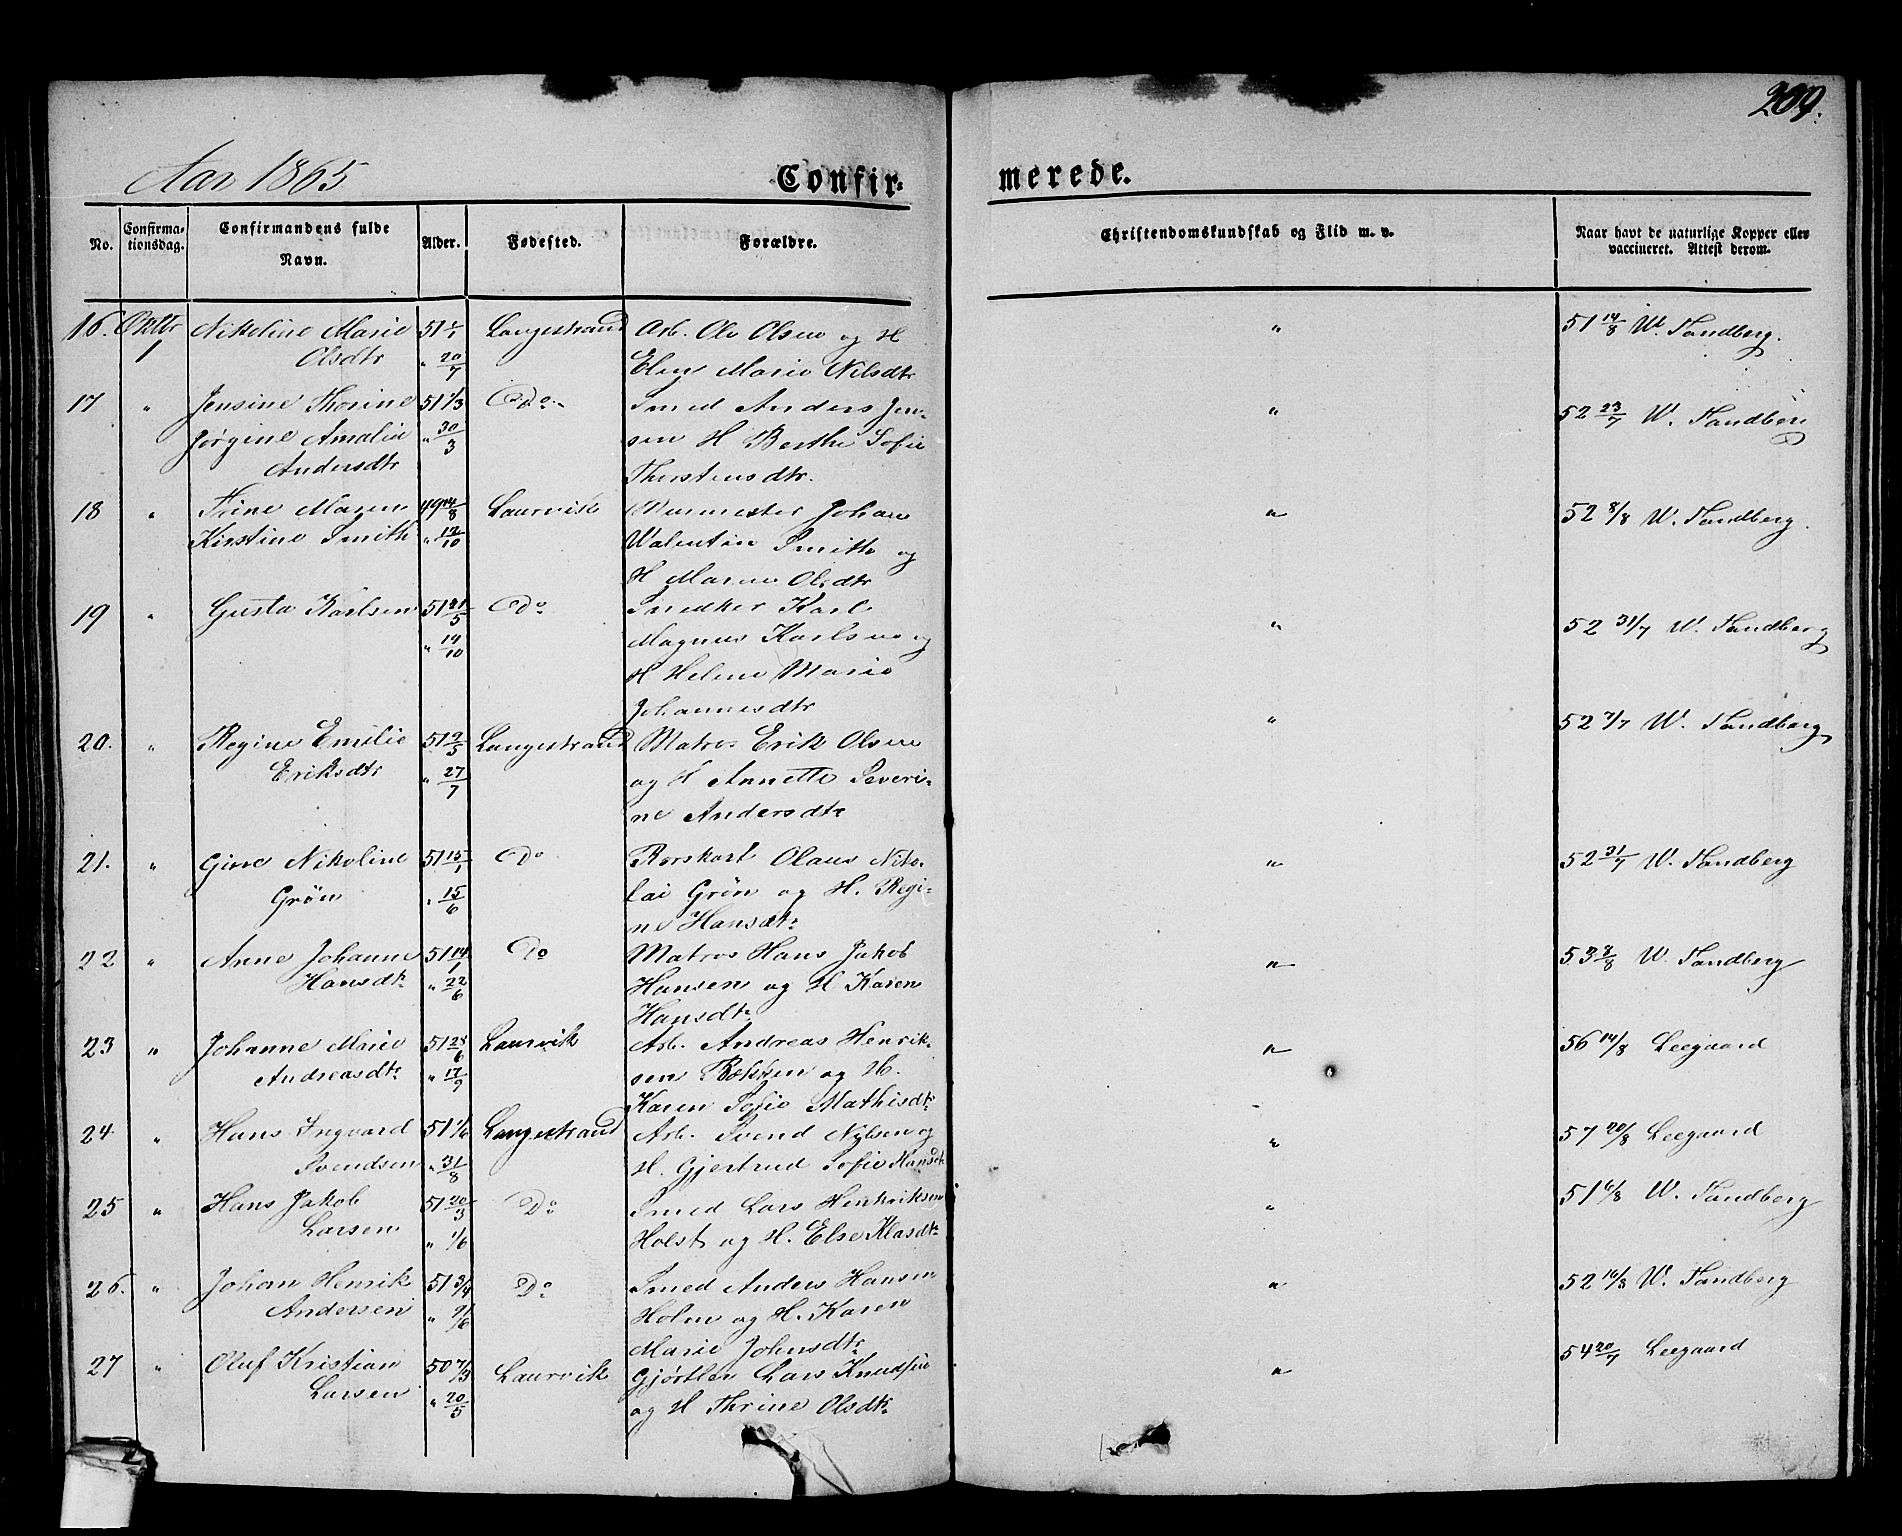 209.
Aar 1865 Confir= merede.
No. Confirma=tionsdag. Confirmandens fulde Navn. Alder. Fødested. Forældre. Christendomskundskab og Flid m. v. Naar havt de naturlige Kopper eller vaccineret. Attest derom.
16. Oktbr 1 Nikoline Marie 51 Langestrand Arb. Ole Olsen og H " 51 14/8 W. Sandberg.
Olsdtr " 20/7 Elen Marie Nilsdtr
17 " Jensine Thorine 51 1/3 Do. Smed Anders Jen= " 52 23/7 W. Sandberg
Jørgine Amalia " 30/3 sen H Berthe Sofie
Andersdtr Thorstensdtr.
18 " Trine Maren 49 14/8 Laurvik Murmester Johan " 52 8/8 W. Sandberg.
Kirstine Smith " 12/10 Valentin Smith og
H Maren Olsdtr
19 " Gusta Karlsen 51 21/5 Do Snedker Karl " 52 31/7 W. Sandberg
" 14/10 Magnus Karlsen og
H Helene Marie
Johannesdtr
20. " Regine Emilie 51 2/5 Langestrand Matros Erik Olsen " 52 7/7 W. Sandberg
Eriksdtr " 27/7 og H Annette Severi=
ne Andersdtr
21. " Gine Nikoline 51 15/1 Do Borskarl Olaus Niko= " 52 31/7 W. Sandberg
Grøn " 15/6 lai Grøn og H. Regi=
ne Hansdtr
22 " Anne Johanne 51 14/1 Do Matros Hans Jakob " 53 2/8 W. Sandberg
Hansdtr " 22/6 Hansen og H Karen
Hansdtr
23 " Johanne Marie 51 23/6 Laurvik Arb. Andreas Henrik= " 56 14/8 Leegaard
Andreasdtr " 17/9 sen og H.
Karen Sofie Mathisdtr
24 " Hans Ingvard 51 1/6 Langestrand Arb. Svend Nilsen og " 57 20/8 Leegaard
Svendsen " 31/8 H. Gjertrud Sofie Hansdtr
25 " Hans Jakob 51 20/3 Do Smed Lars Henriksen " 51 6/8 W. Sandberg
Larsen " 1/6 Holst og H. Else Klasdtr
26. " Johan Henrik 51 3/4 Do Smed Anders Hansen " 52 16/8 W. Sandberg
Andersen " 21/6 Holm og H. Karen
Marie Johnsdtr
27 " Oluf Kristian 50 7/3 Laurvik Gjørtler Lars Knudsen " 54 20/7 Leegaard
Larsen " 20/5 og H Thrine Olsdtr